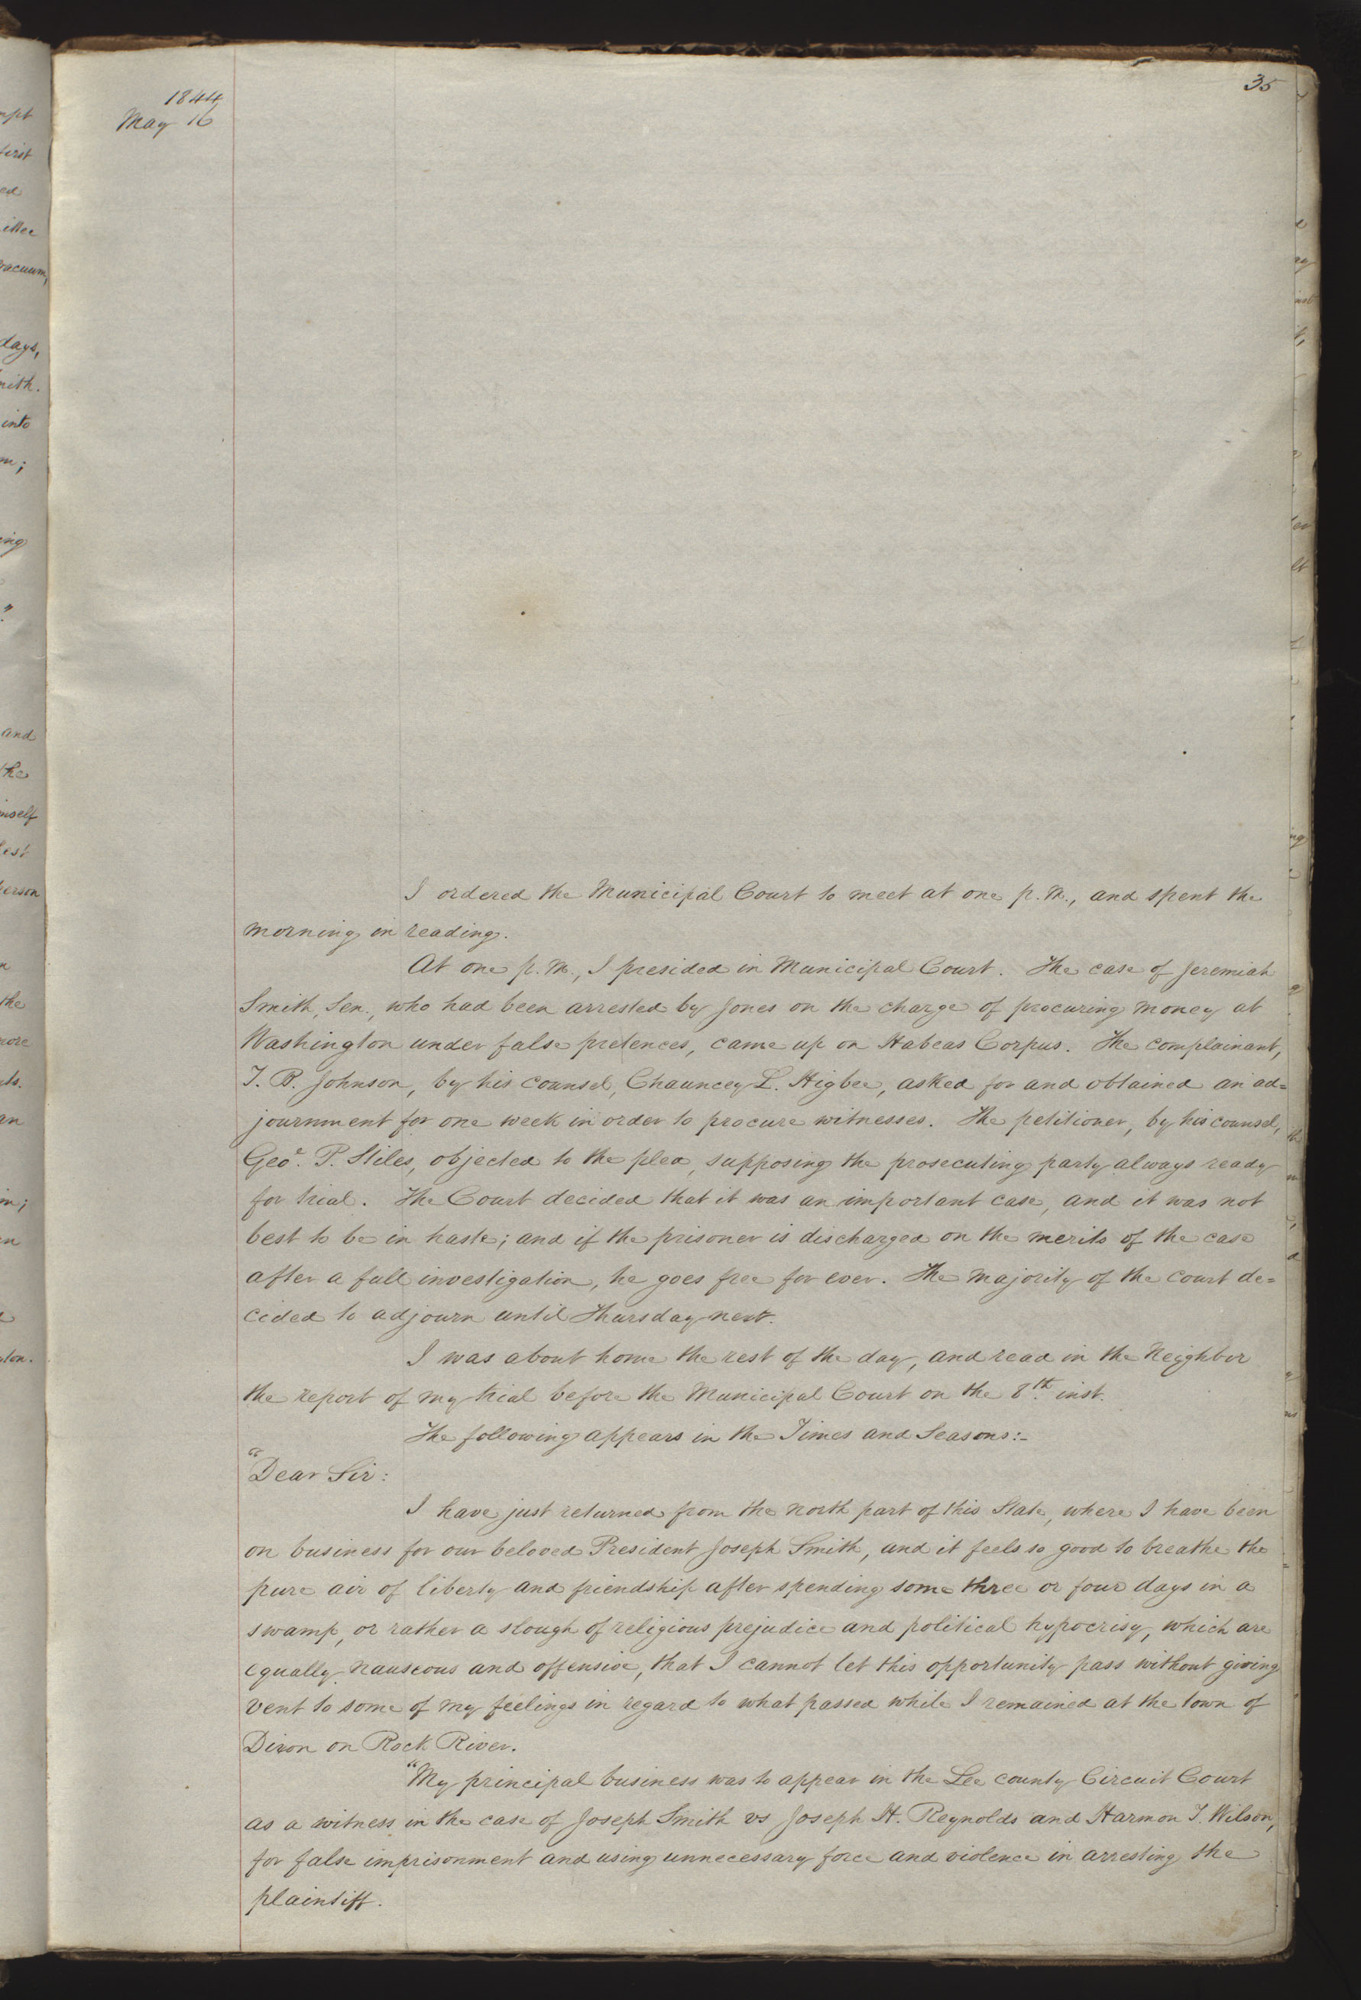 35
1844
May 16
I ordered the Municipal Court to meet at one p. m., and spent the
morning in reading.
At one p. m., I presided in Municipal Court. The case of Jeremiah
Smith, Sen., who had been arrested by Jones on the charge of procuring money at
Washington under false pretences, came up on Habeas Corpus. The complainant,
T. B. Johnson, by his counsel, Chauncey L. Higbee, asked for and obtained an ad=
journment for one week in order to procure witnesses. The petitioner, by his counsel,
Geo. P. Stiles, objected to the plea, supposing the prosecuting party always ready
for trial. The Court decided that it was an important case, and it was not
best to be in haste; and if the prisoner is discharged on the merits of the case
after a full investigation, he goes free for ever. The majority of the court de=
cided to adjourn until Thursday next.
I was about home the rest of the day, and read in the Neighbor
the report of my trial before the Municipal Court on the 8th inst.
The following appears in the Times and Seasons:-
"Dear Sir:
I have just returned from the north part of this State, where I have been
on business for our beloved President Joseph Smith, and it feels so good to breathe the
pure air of liberty and friendship after spending some three or four days in a
swamp, or rather a slough of religious prejudice and political hypocrisy, which are
equally nauseous and offensive, that I cannot let this opportunity pass without giving
vent to some of my feelings in regard to what passed while I remained at the town of
Dixon on Rock River.
"My principal business was to appear in the Lee county Circuit Court
as a witness in the case of Joseph Smith vs Joseph H. Reynolds and Harmon T. Wilson,
for false imprisonment and using unnecessary force and violence in arresting the
plaintiff.